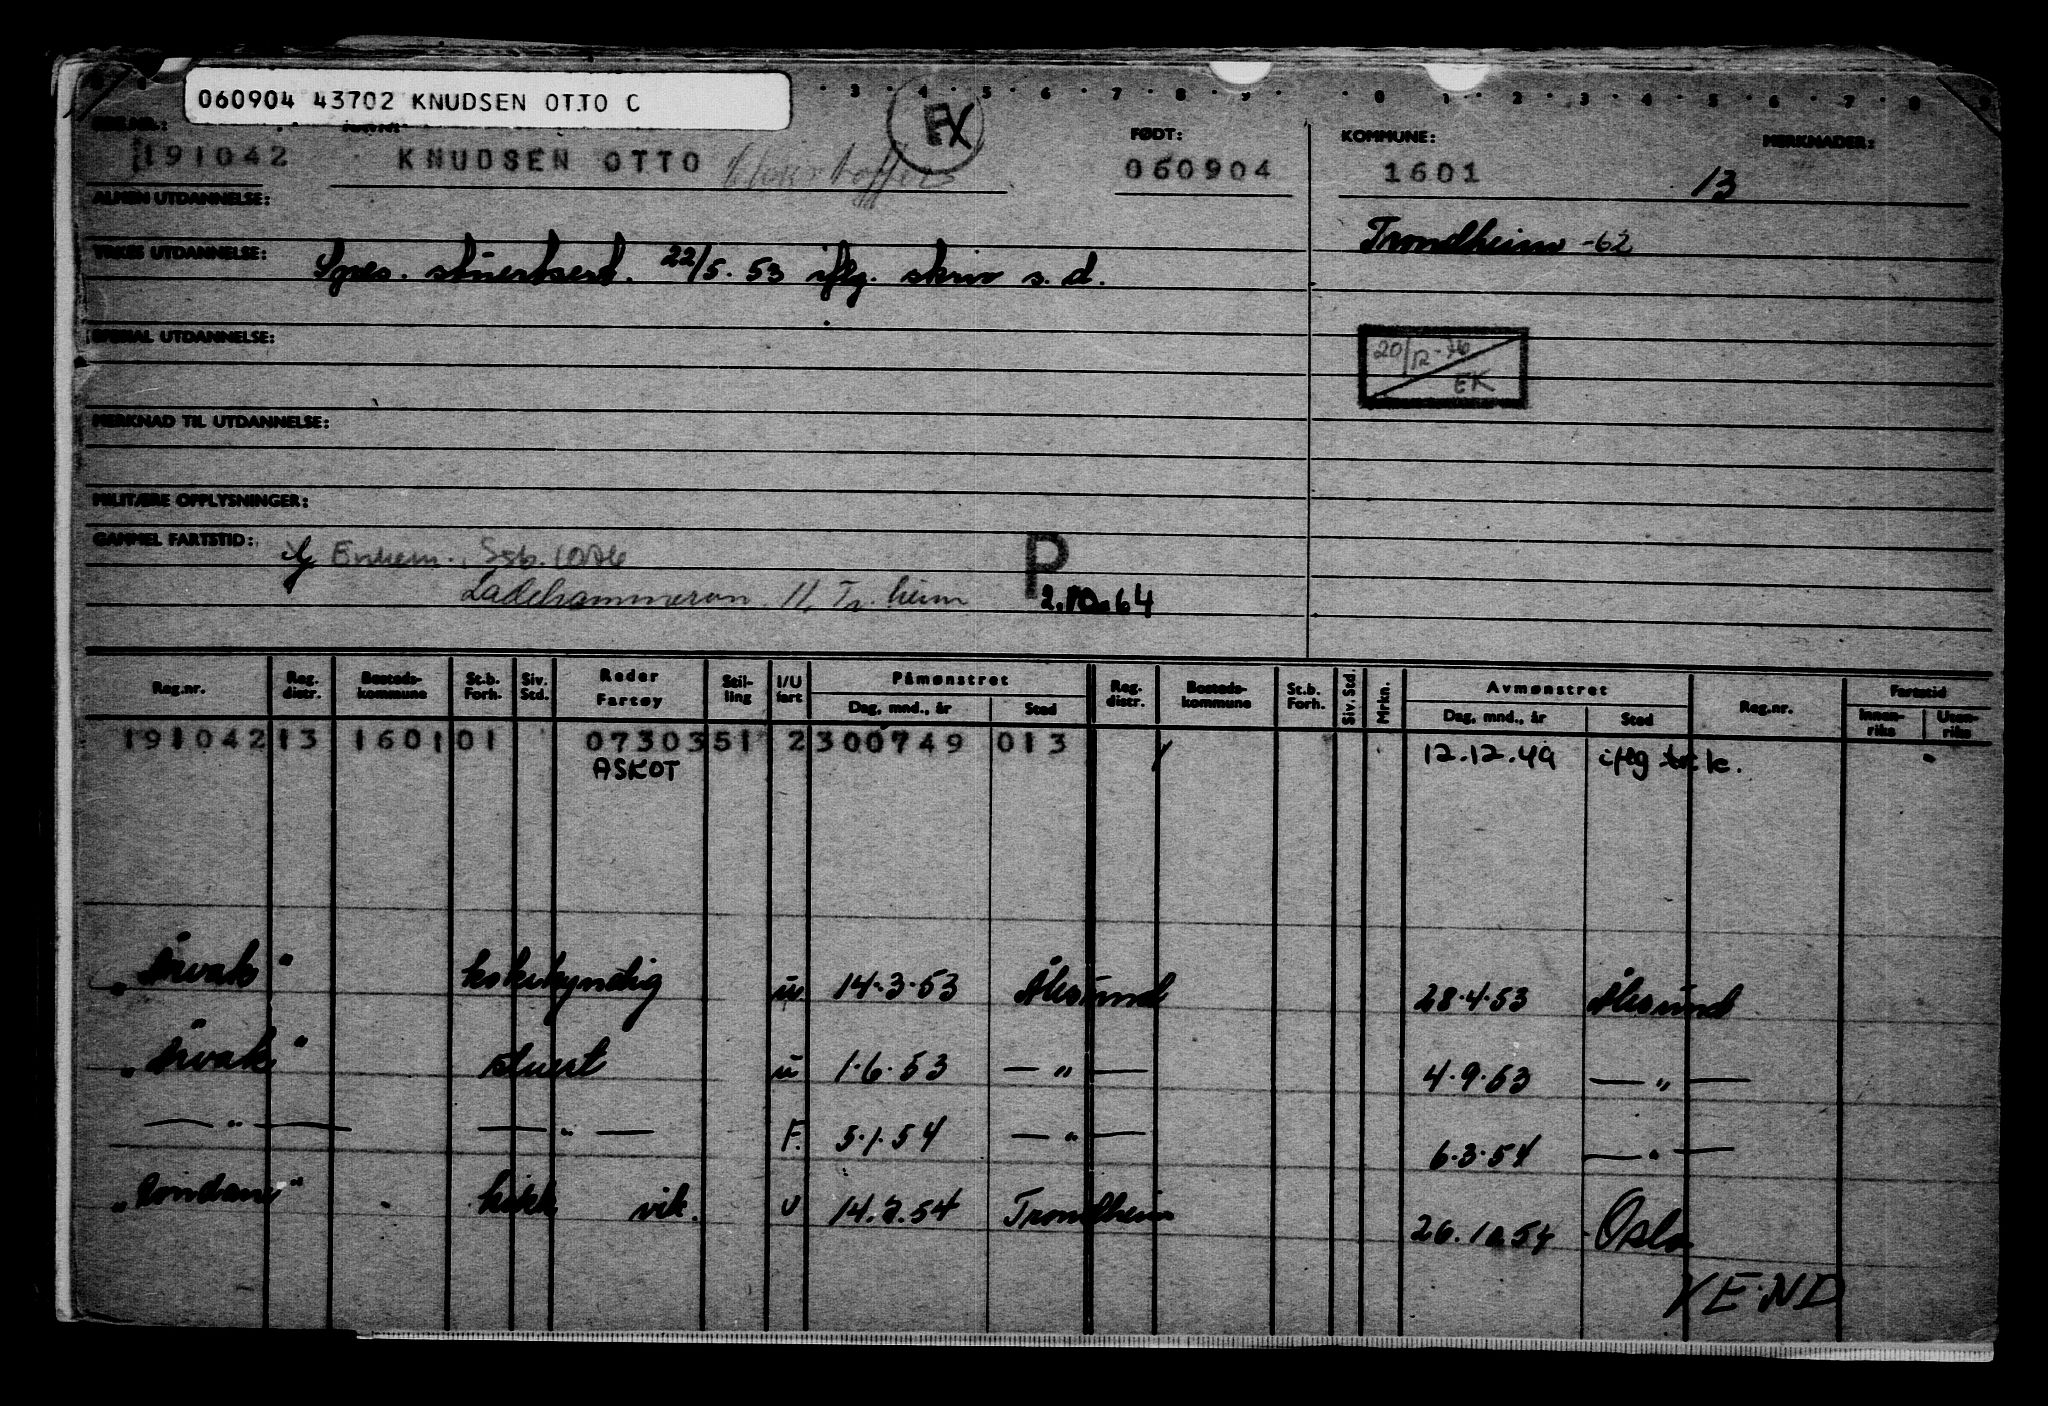 060904 43702 KNUDSEN OTTO C
3 · 4 · 5 · 6 · 7 · 8 · 9 · · 0 · 1 · 2 · 3 · 4 · 5 · 6 · 7 · 8 · 9
FX
FØDT: KOMMUNE: MERKNADER:
191042 KNUDSEN OTTO 060904 1601 13
ALMEN UTDANNELSE:
Trondheim -62
YRKES UTDANNELSE: Spes. stuertsert. 22/5. 53 iflg. skriv s. d.
SPESIAL UTDANNELSE:
20/12-76
EK
MERKNAD TIL UTDANNELSE:
MILITÆRE OPPLYSNINGER:
GAMMEL FARTSTID:
Ladehammeren 11, Tr.heim
P
2.10.64
Reg.nr. Reg. distr. Bosteds-kommune St.b. Forh. Siv. Std. Reder Fartøy Stil-ling I/U fart Påmønstret Dag, mnd., år Sted Reg. distr. Bosteds-kommune St.b. Forh. Siv. Std. Mrkn. Avmønstret Dag, mnd., år Sted Reg.nr. Fartstid Innen-riks Uten-riks
191042 13 1601 01 0730351 2 300749 013 12.12.49 iflg
ASKOT
kokkyndig u 14.3.53 Ålesund 28.4.53 Ålesund
stuert u 1.6.53 — " — 4.9.53 — " —
— " — — " — F. 5.1.54 — " — 6.3.54 — " —
kokk vik. U 14.7.54 Trondheim 26.10.54 Oslo
VEND